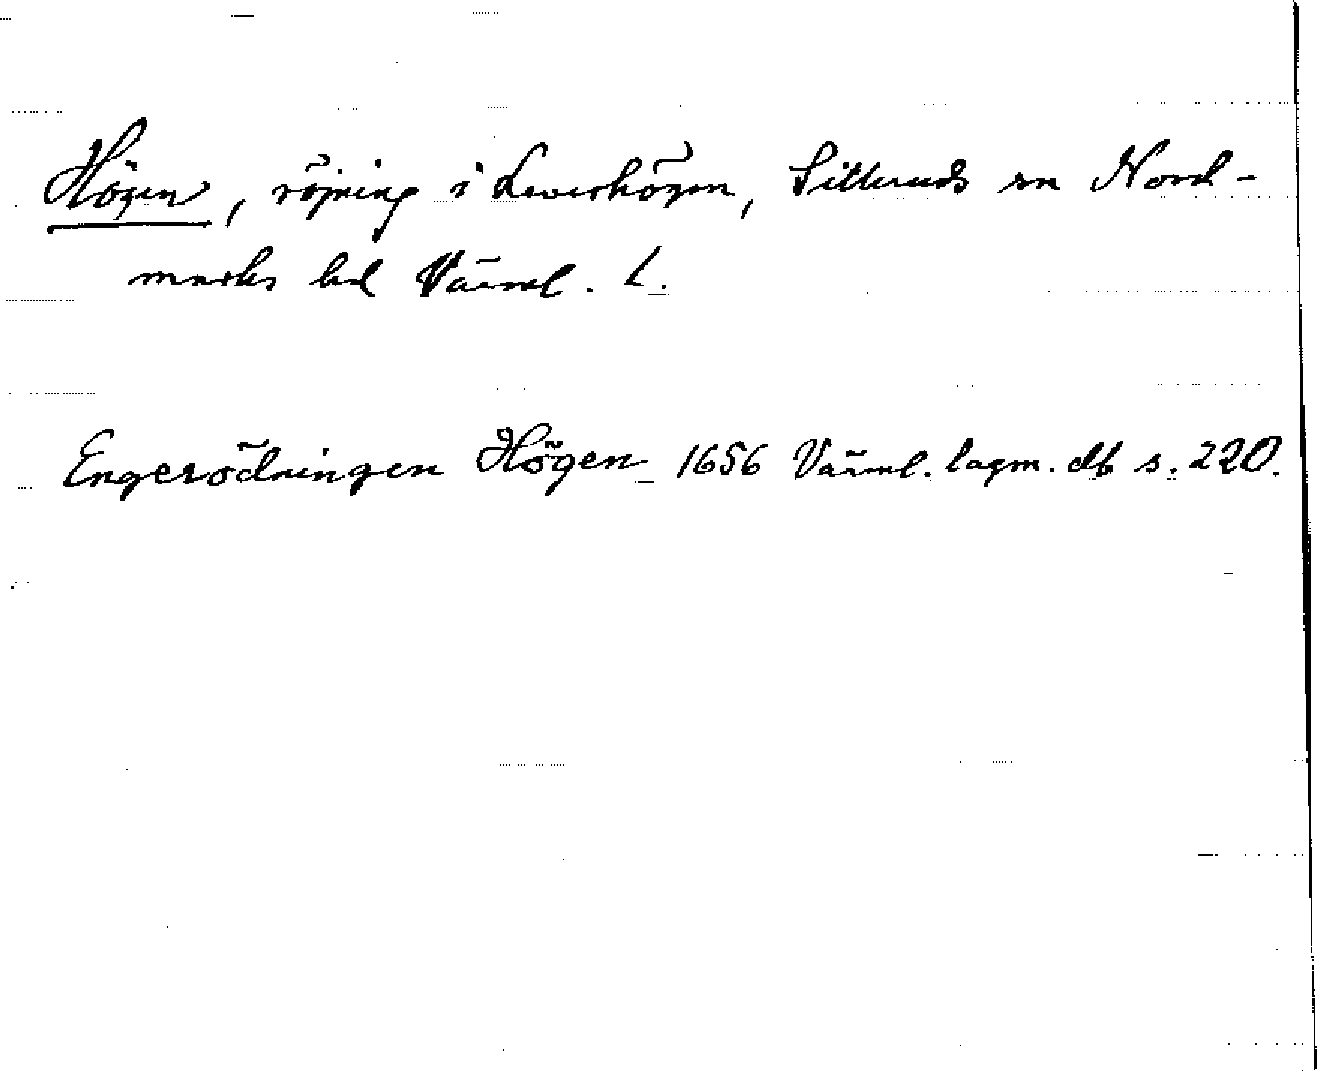 Högen, röjning i Leverhögen, Silleruds sn Nord-
marks hd Värml. L.
Engerödningen Högen 1656 Värml. lagm. db s. 220.